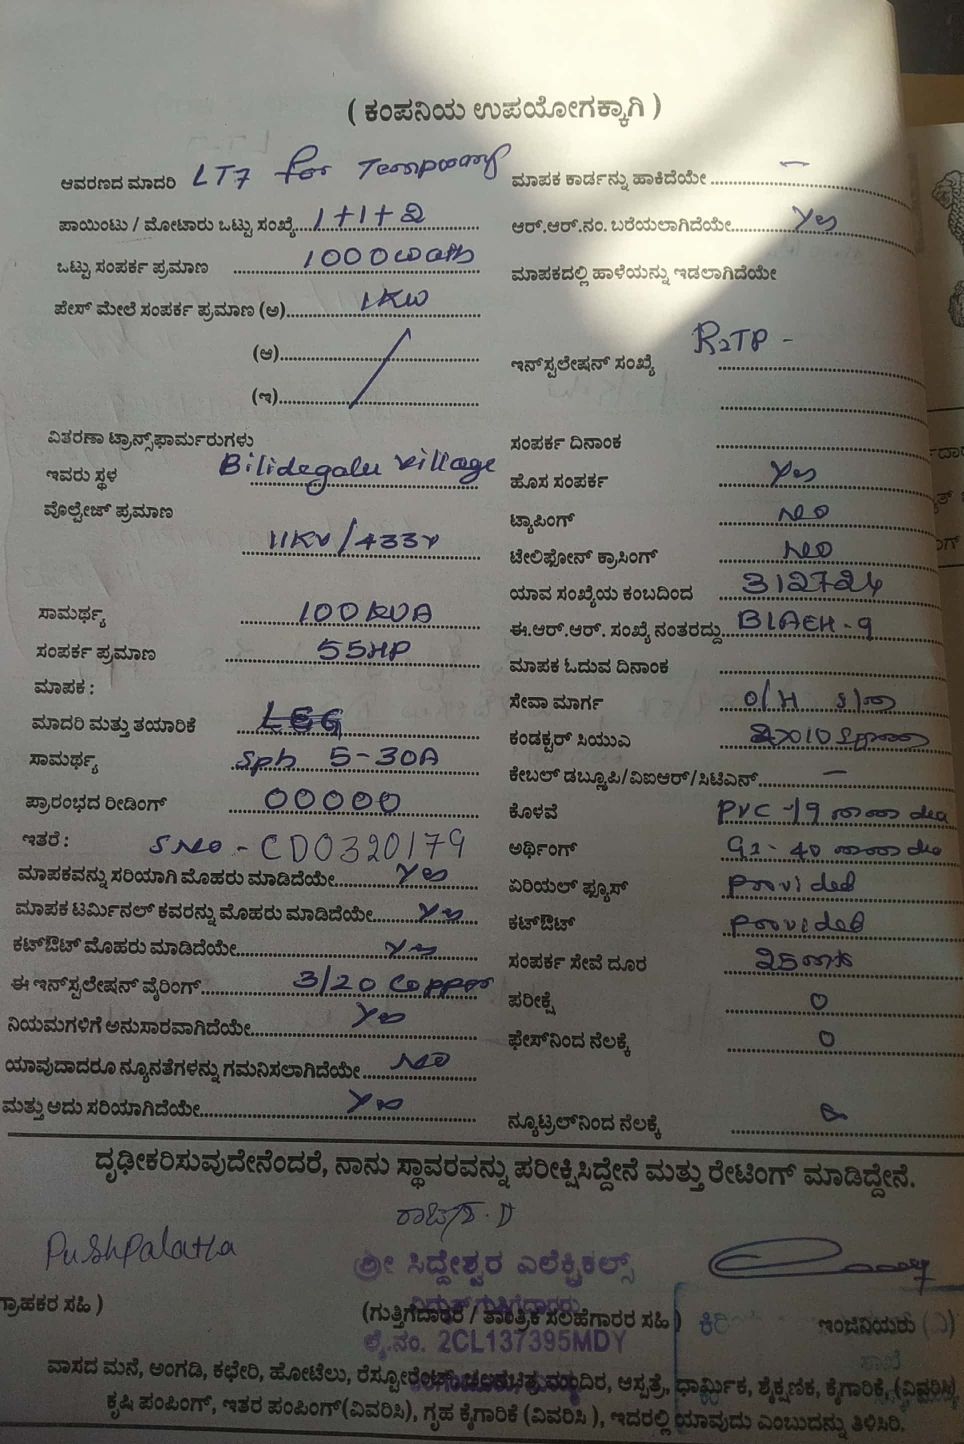 ( ಕಂಪನಿಯ ಉಪಯೋಗಕ್ಕಾಗಿ )
ಆವರಣದ ಮಾದರಿ LT7 for Temporary
ಪಾಯಿಂಟು / ಮೋಟಾರು ಒಟ್ಟು ಸಂಖ್ಯೆ....1+1+2
ಒಟ್ಟು ಸಂಪರ್ಕ ಪ್ರಮಾಣ 1000watts
ಪೇಸ್ ಮೇಲೆ ಸಂಪರ್ಕ ಪ್ರಮಾಣ (ಅ)....1KW
(ಆ)....
(ಇ)....
ವಿತರಣಾ ಟ್ರಾನ್ಸ್‌ಫಾರ್ಮರುಗಳು
ಇವರು ಸ್ಥಳ Bilidegalu village
ವೊಲ್ಟೇಜ್ ಪ್ರಮಾಣ
11KV/433V
ಸಾಮರ್ಥ್ಯ 100KVA
ಸಂಪರ್ಕ ಪ್ರಮಾಣ 55HP
ಮಾಪಕ :
ಮಾದರಿ ಮತ್ತು ತಯಾರಿಕೆ
ಸಾಮರ್ಥ್ಯ Sph 5-30A
ಪ್ರಾರಂಭದ ರೀಡಿಂಗ್ 00000
ಇತರೆ : SNo - CD0320179
ಮಾಪಕವನ್ನು ಸರಿಯಾಗಿ ಮೊಹರು ಮಾಡಿದೆಯೇ....Yes
ಮಾಪಕ ಟರ್ಮಿನಲ್ ಕವರನ್ನು ಮೊಹರು ಮಾಡಿದೆಯೇ....Yes
ಕಟ್‌ಔಟ್ ಮೊಹರು ಮಾಡಿದೆಯೇ....Yes
ಈ ಇನ್‌ಸ್ಟಲೇಷನ್ ವೈರಿಂಗ್....3/20 Copper
ನಿಯಮಗಳಿಗೆ ಅನುಸಾರವಾಗಿದೆಯೇ....Yes
ಯಾವುದಾದರೂ ನ್ಯೂನತೆಗಳನ್ನು ಗಮನಿಸಲಾಗಿದೆಯೇ....NO
ಮತ್ತು ಅದು ಸರಿಯಾಗಿದೆಯೇ....Yes
ಮಾಪಕ ಕಾರ್ಡನ್ನು ಹಾಕಿದೆಯೇ....-
ಆರ್.ಆರ್.ನಂ. ಬರೆಯಲಾಗಿದೆಯೇ....Yes
ಮಾಪಕದಲ್ಲಿ ಹಾಳೆಯನ್ನು ಇಡಲಾಗಿದೆಯೇ
R2TP -
ಇನ್‌ಸ್ಟಲೇಷನ್ ಸಂಖ್ಯೆ
ಸಂಪರ್ಕ ದಿನಾಂಕ
ಹೊಸ ಸಂಪರ್ಕ Yes
ಟ್ಯಾಪಿಂಗ್ NO
ಟೇಲಿಫೋನ್ ಕ್ರಾಸಿಂಗ್ NO
ಯಾವ ಸಂಖ್ಯೆಯ ಕಂಬದಿಂದ 312724
ಈ.ಆರ್.ಆರ್. ಸಂಖ್ಯೆ ನಂತರದ್ದು....BIAEH-9
ಮಾಪಕ ಓದುವ ದಿನಾಂಕ
ಸೇವಾ ಮಾರ್ಗ O/H
ಕಂಡಕ್ಟರ್ ಸಿಯುಎ 2x10 sqmm
ಕೇಬಲ್ ಡಬ್ಲ್ಯೂಪಿ/ವಿಐಆರ್/ಸಿಟಿಎನ್....-
ಕೊಳವೆ PVC-19 mm dia
ಅರ್ಥಿಂಗ್ GI-40 mm dia
ಏರಿಯಲ್ ಫ್ಯೂಸ್ provided
ಕಟ್‌ಔಟ್ provided
ಸಂಪರ್ಕ ಸೇವೆ ದೂರ 25mts
ಪರೀಕ್ಷೆ 0
ಫೇಸ್‌ನಿಂದ ನೆಲಕ್ಕೆ 0
ನ್ಯೂಟ್ರಲ್‌ನಿಂದ ನೆಲಕ್ಕೆ
ದೃಢೀಕರಿಸುವುದೇನೆಂದರೆ, ನಾನು ಸ್ಥಾವರವನ್ನು ಪರೀಕ್ಷಿಸಿದ್ದೇನೆ ಮತ್ತು ರೇಟಿಂಗ್ ಮಾಡಿದ್ದೇನೆ.
Pushpalatha
ಶ್ರೀ ಸಿದ್ದೇಶ್ವರ ಎಲೆಕ್ಟ್ರಿಕಲ್ಸ್
ವಿದ್ಯುತ್ ಗುತ್ತಿಗೆದಾರರು
ಗ್ರಾಹಕರ ಸಹಿ )
(ಗುತ್ತಿಗೆದಾರರ / ತಾಂತ್ರಿಕ ಸಲಹೆಗಾರರ ಸಹಿ )
ಇಂಜಿನಿಯರು
ಲೈ.ನಂ. 2CL137395MDY
ಶಾಖೆ
ವಾಸದ ಮನೆ, ಅಂಗಡಿ, ಕಛೇರಿ, ಹೋಟೆಲು, ರೆಸ್ಟೋರೆಂಟ್, ಚಲನಚಿತ್ರ ಮಂದಿರ, ಆಸ್ಪತ್ರೆ, ಧಾರ್ಮಿಕ, ಶೈಕ್ಷಣಿಕ, ಕೈಗಾರಿಕೆ, (ವಿವರಿಸಿ)
ಕೃಷಿ ಪಂಪಿಂಗ್, ಇತರ ಪಂಪಿಂಗ್(ವಿವರಿಸಿ), ಗೃಹ ಕೈಗಾರಿಕೆ (ವಿವರಿಸಿ ), ಇದರಲ್ಲಿ ಯಾವುದು ಎಂಬುದನ್ನು ತಿಳಿಸಿರಿ.